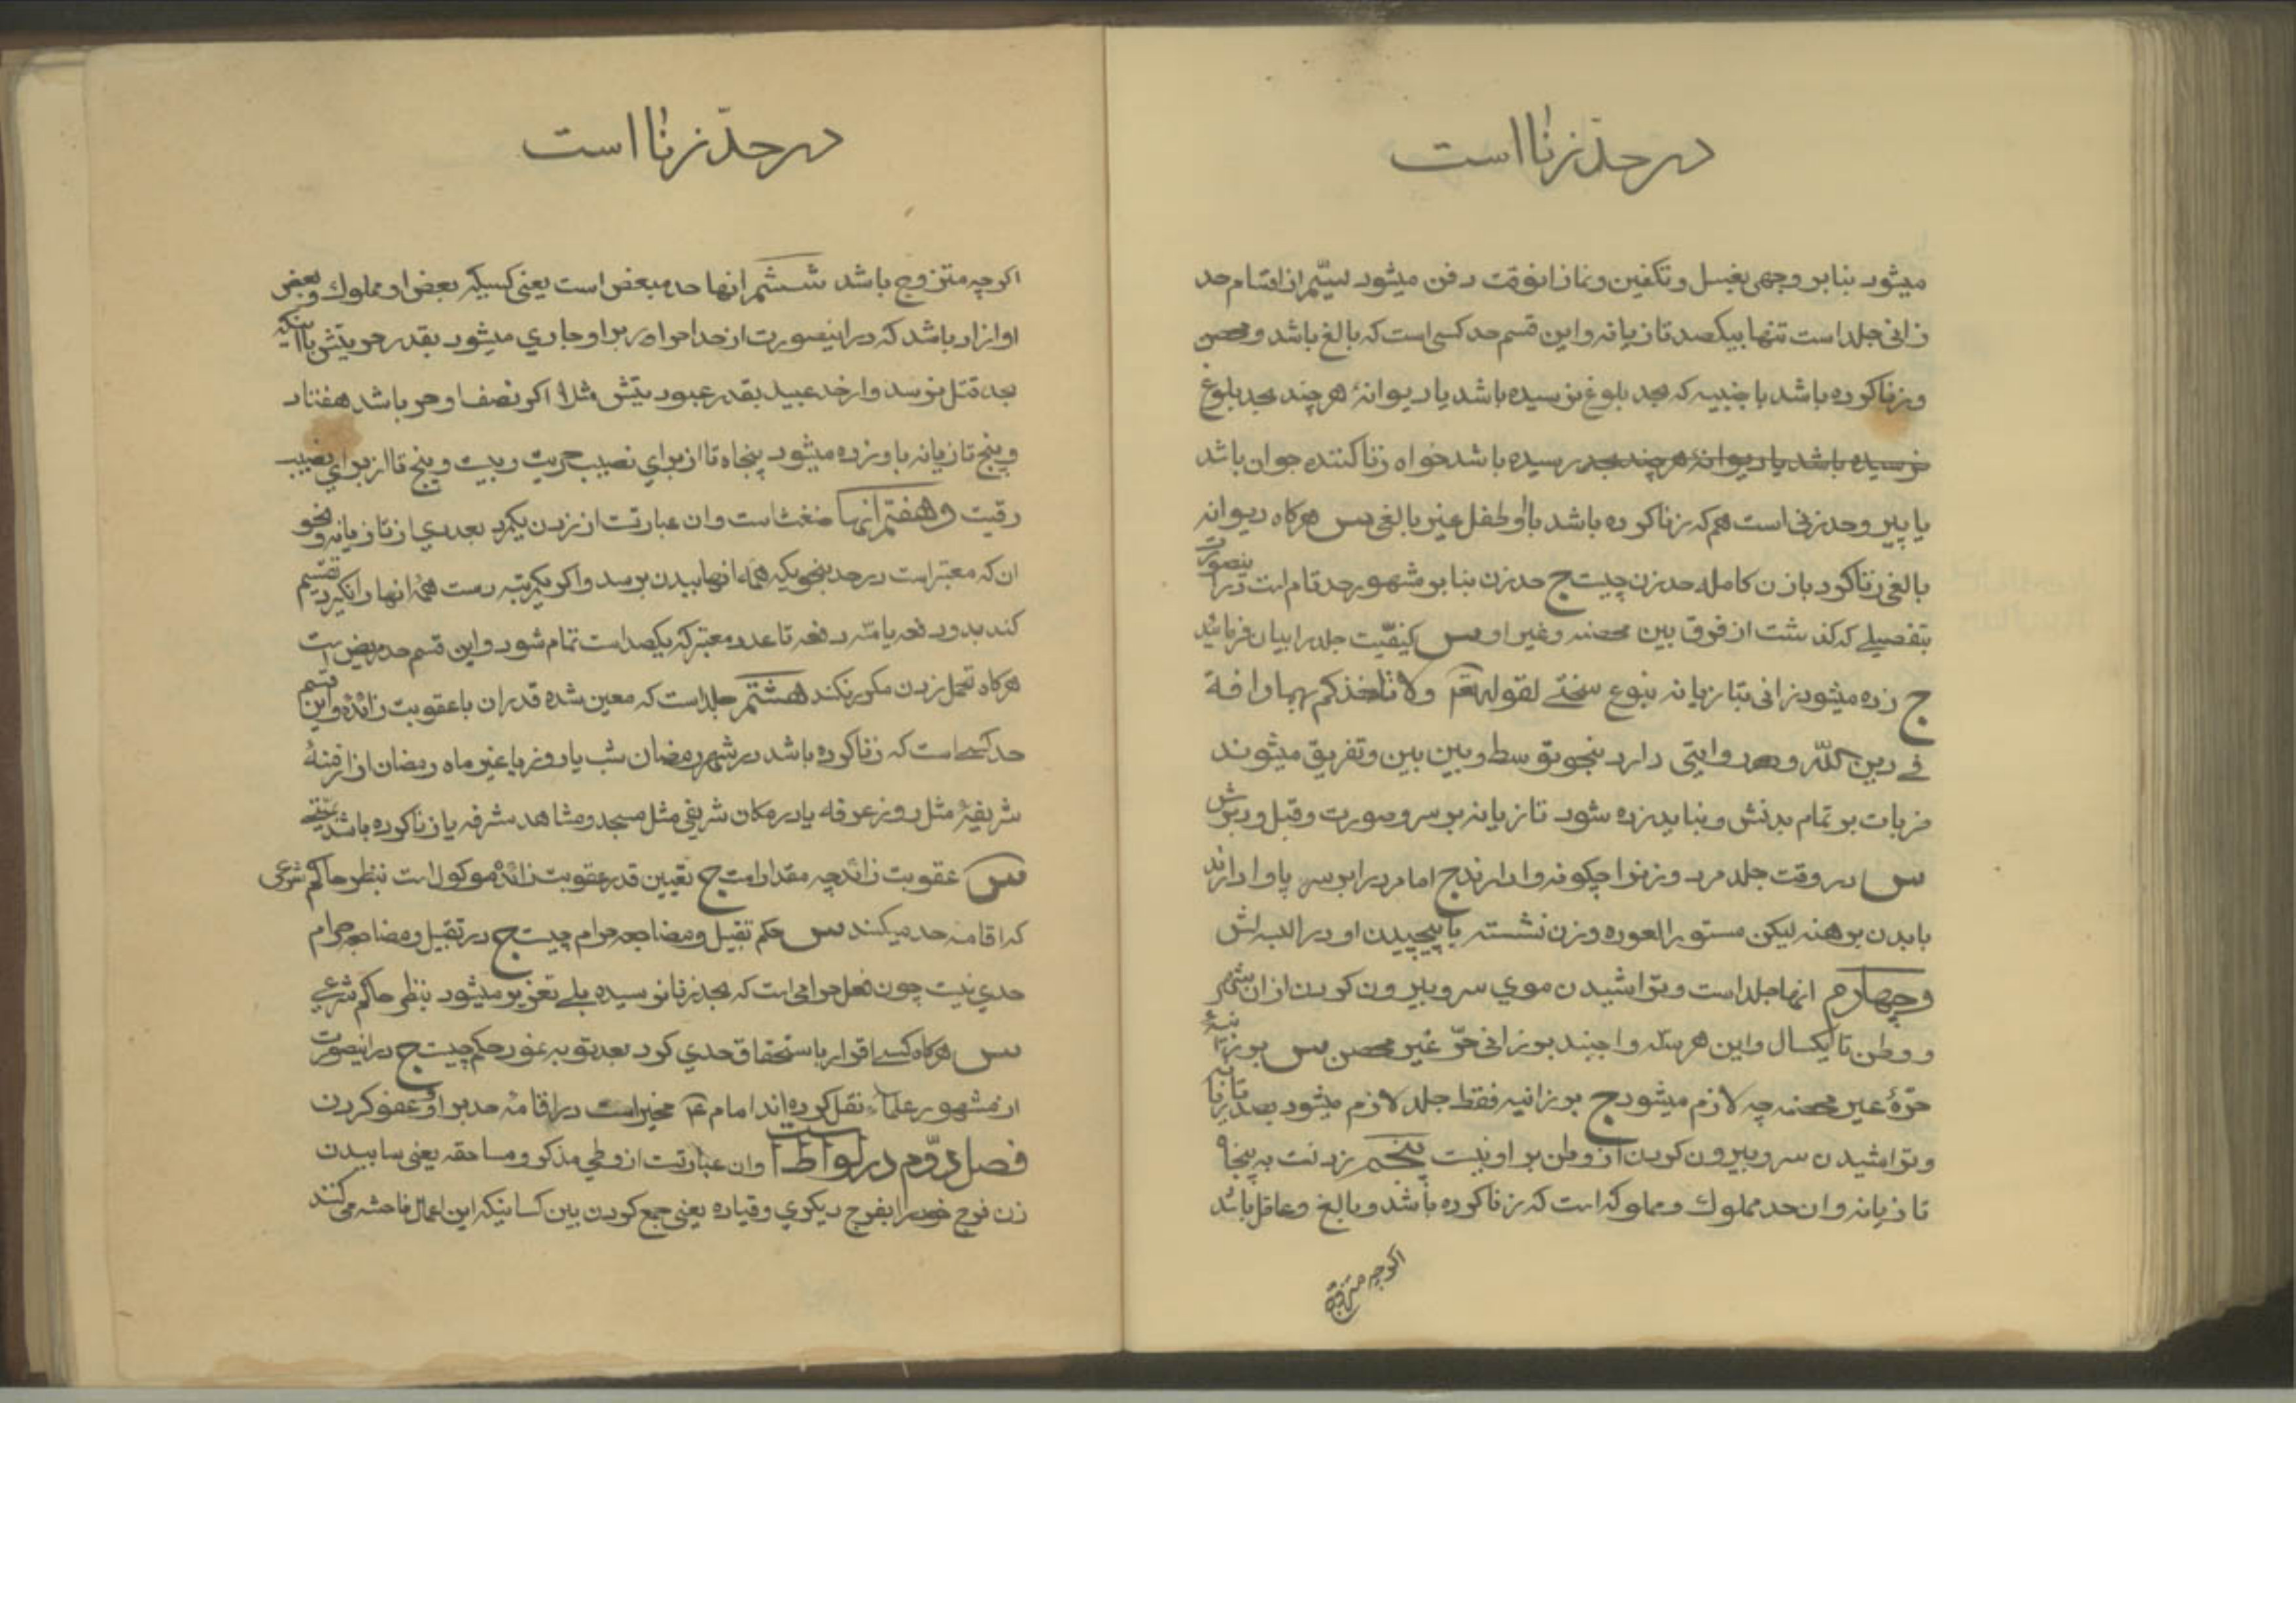 در حدّ زنا است
میشود بنا بر وجهی بغسل و تکفین و نماز انوقت دفن میشود سیّم از اقسام حد
زانی جلد است تنها بیکصد تازیانه و این قسم حد کسی است که بالغ باشد و محصن
و زنا کرده باشد با جنبیه که بحد بلوغ نرسیده باشد یا دیوانهٔ هر چند بحد بلوغ
نرسیده باشد یا دیوانهٔ هر چند بحد رسیده باشد خواه زنا کننده جوان باشد
یا پیر و حد زنی است هم که زنا کرده باشد با او طفل غیر بالغی س هرکاه دیوانه
بالغی زنا کرد با زن کامله حد زن چیست ج حد زن بنا بر مشهور حد تام است در اینصورت
بتفصیلے که کذشت از فرق بین محصنه و غیر او س کیفیّت جلد را بیان فرمائید
ج زده میشود زانی بتازیانه بنوع سختے لقوله تعم ولا تاخذکم بهما رافة
فے دین اللّه و روایتی دارد بنحو توسط و بین بین و تفریق میشوند
ضربات بر تمام بدنش و نباید زده شود تازیانه بر سر و صورت و قبل و دبرش
س در وقت جلد مرد و زنرا چکونه وا دارند ج امام مرد را بر سر پا وا دارند
با بدن برهنه لیکن مستور العوره و زن نشسته با پیچیدن او در البسه اش
و چهارم انها جلد است و تراشیدن موی سر و بیرون کردن از ان شهر
و وطن تا یکسال و این هر سه واجبند بر زانی حرّ غیر محصن س بر زانیهٔ
حرّهٔ غیر محصنه چه لازم میشود ج بر زانیه فقط جلد لازم میشود بصد تازیانه
و تراشیدن سر و بیرون کردن از وطن بر او نیست پنجم زدنست به پنجاه
تازیانه و ان حد مملوک و مملوکه است که زنا کرده باشد و بالغ و عاقل باشد
اکرچه متزوج
در حدّ زنا است
اکرچه متزوج باشد ششم انها حد مبعض است یعنی کسیکه بعض او مملوک و بعض
او ازاد باشد که در اینصورت از حد احرار بر او جاری میشود بقدر حریتش با اینکه
بحد قتل نرسد و از حد عبید بقدر عبودیتش مثلا اکر نصف او حر باشد هفتاد
و پنج تازیانه باو زده میشود پنجاه تا از برای نصیب حریت و بیست و پنج تا از برای نصیب
رقیت و هفتم انها ضغث است و ان عبارتست از زدن یکمرد بعددی از تازیانه و نحو
ان که معتبر است در حد بنحویکه همهٔ انها ببدن برسد و اکر یکمرتبه دست همهٔ انها را نکیرد تقسیم
کند بدو دفعه یا سه دفعه تا عدد معتبر که یکصد است تمام شود و این قسم حد مریض است
هرکاه تحمل زدن مکرر نکند هشتم جلد است که معین شده قدر ان با عقوبت زائده و این قسم
حد کسے است که زنا کرده باشد در شهر رمضان شب یا روز یا غیر ماه رمضان از ازمنهٔ
شریفهٔ مثل روز عرفه یا در مکان شریفی مثل مسجد و مشاهد مشرفه یا زنا کرده باشد
س عقوبت زائد چه مقدار است ج تعیین قدر عقوبت زائده موکول است بنظر حاکم شرعی
که اقامه حد میکند س حکم تقبیل و مضاجعه حرام چیست ج در تقبیل و مضاجعه حرام
حدی نیست چون فعل حرامی است که بحد زنا نرسیده بلے تعزیر میشود بنظر حاکم شرعے
س هرکاه کسے اقرار باستحقاق حدی کرد بعد توبه نمود حکم چیست ج در اینصورت
از مشهور علماء نقل کرده اند امام ع مخیر است در اقامهٔ حد بر او و عفو کردن
فصل دوّم در لواط است و ان عبارتست از وطی مذکر و مساحقه یعنی سابیدن
زن فرج خود را بفرج دیکری و قیاده یعنی جمع کردن بین کسانیکه این اعمال فاحشه می کنند